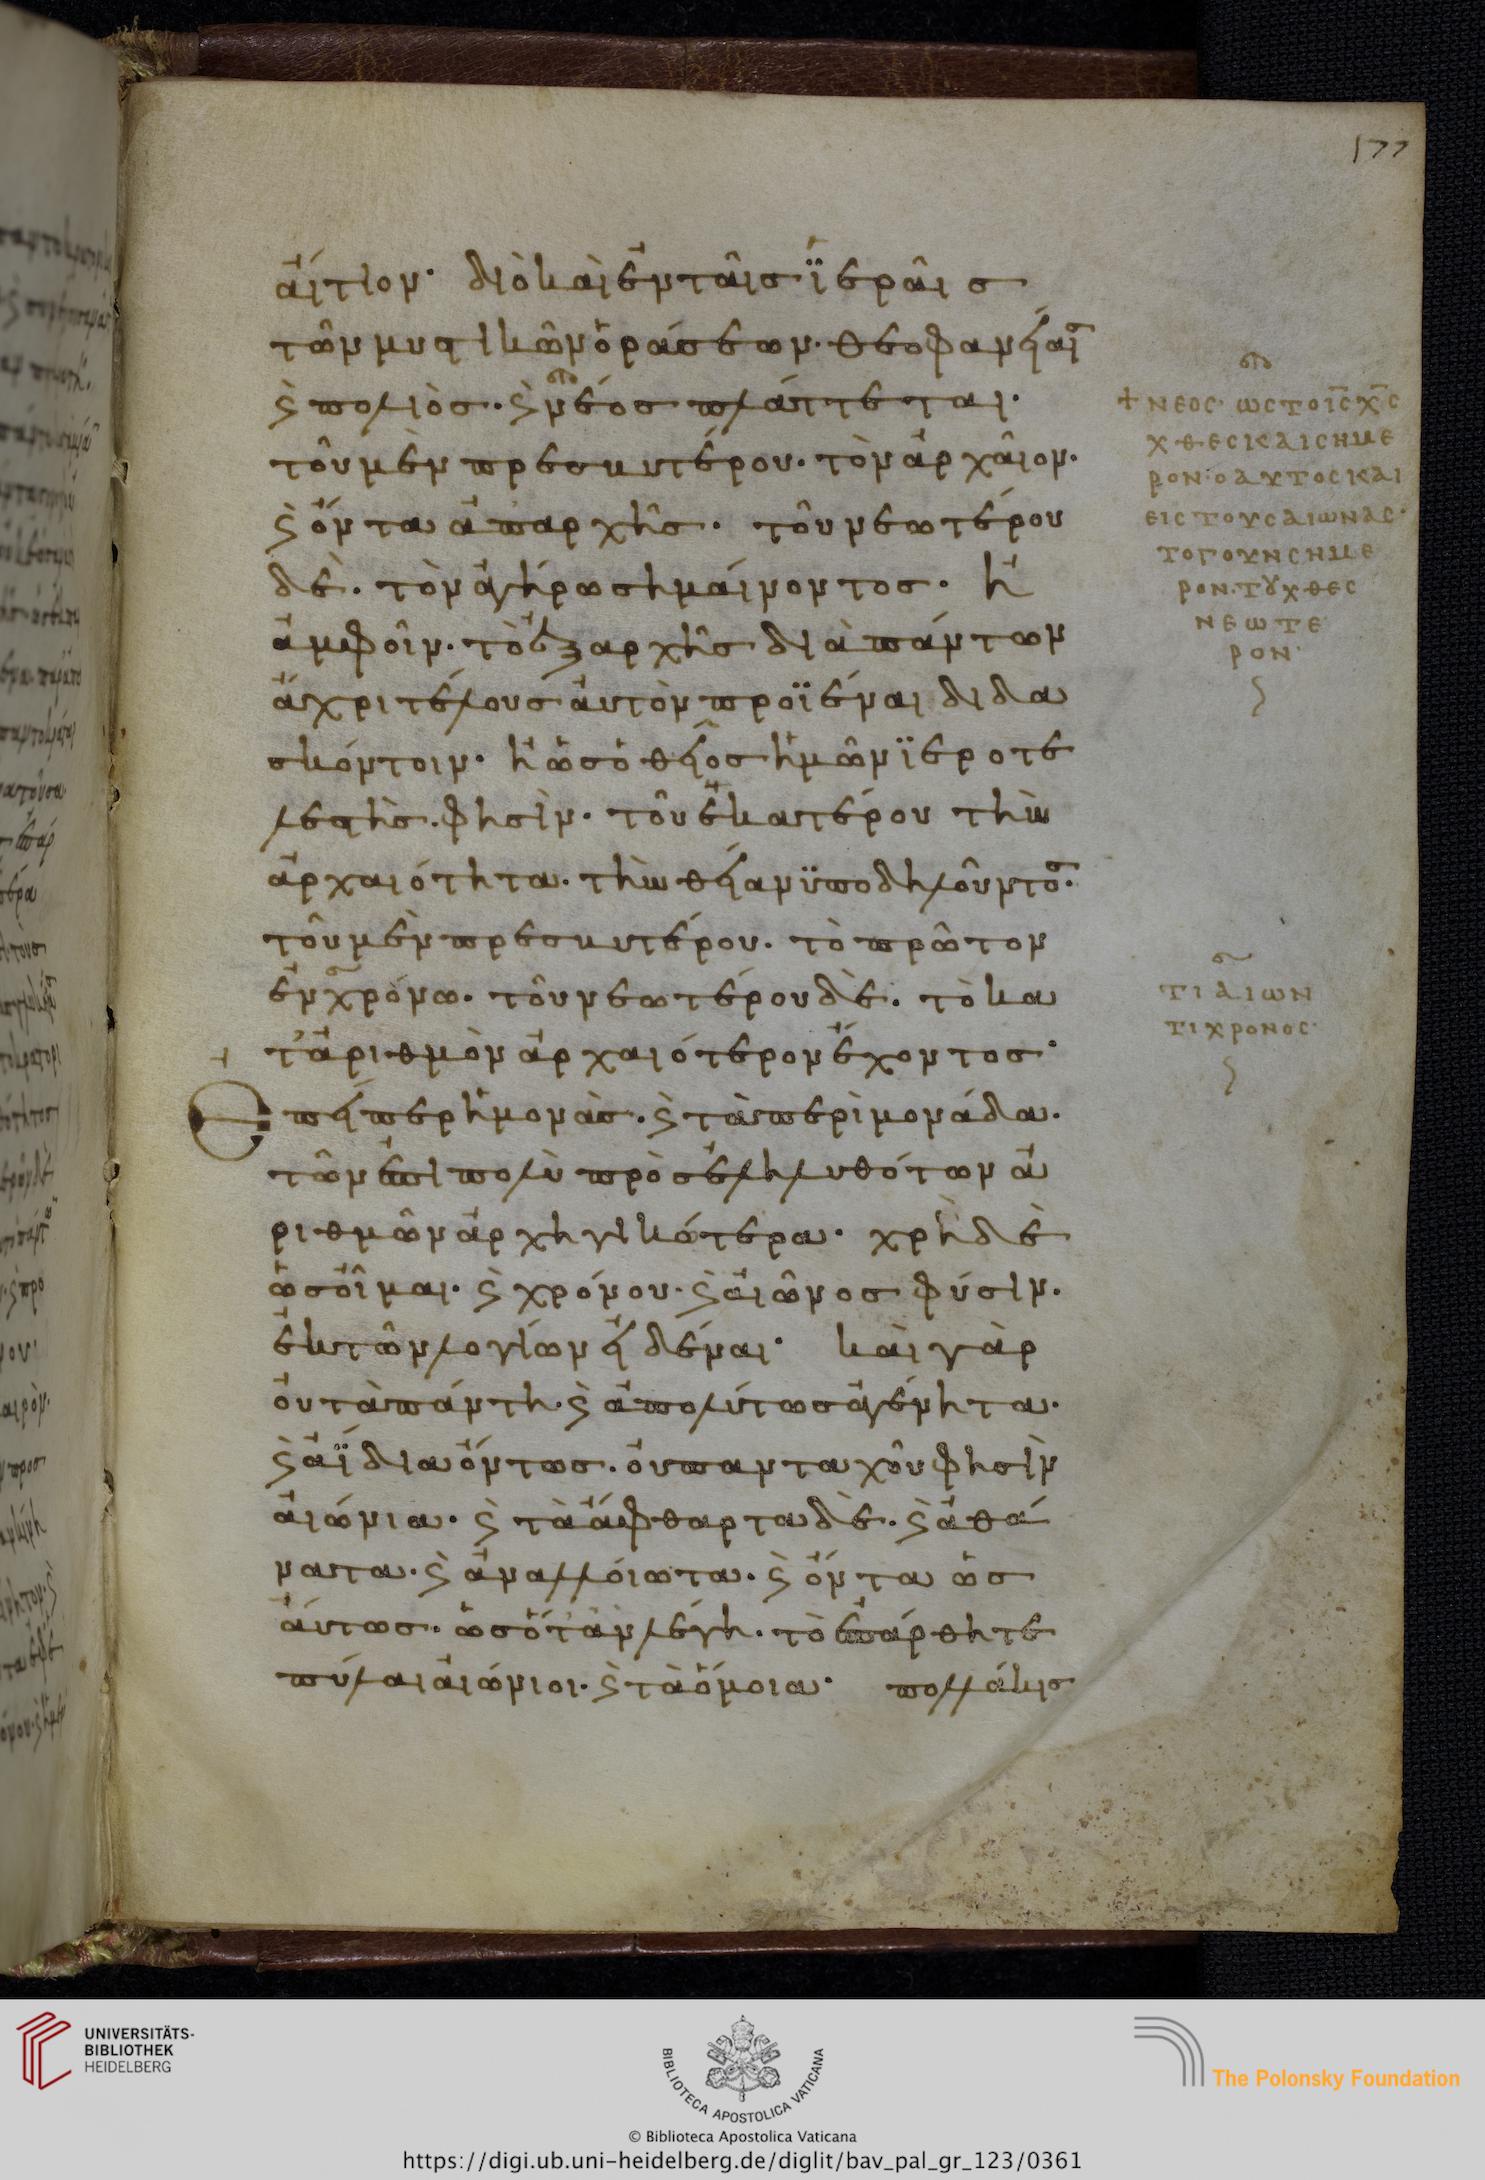 177
ἄίτιον· διὸ καὶ ἐν ταῖσ ϊεραῖσ
τῶν μυστικῶν ὁράσεων· θεοφανείαισ
ϗ πολιὸσ· ϗ νέοσ πλάττεται·
τοῦ μὲν πρεσβυτέρου· τὸν ἀρχαῖον·
ϗ ὄντα ἀπαρχῆσ· τοῦ νεωτέρου
δὲ· τὸν ἀγήρω σημαίνοντοσ· ἢ
ἀμφοῖν· τὸ ἐξαρχῆσ διὰ πάντων
ἄχρι τέλουσ ἀυτὸν προϊέναι διδα
σκόντοιν· ἢ ὡσ ὁ θεῖοσ ἡμῶν ϊεροτε
λεστὴσ· φησὶν· τοῦ ἑκατέρου τὴν
ἀρχαιότητα· τὴν θείαν ϋποδηλοῦντοσ·
τοῦ μὲν πρεσβυτέρου· τὸ πρῶτον
ἐν χρόνω· τοῦ νεωτέρου δὲ· τὸ κα
τ' ἀριθμὸν ἀρχαιότερον ἔχοντοσ·
Επείπερ ἡ μονὰσ· ϗ τὰ περὶ μονάδα·
τῶν ἐπιπολὺ πρὸσ ἐληλυθότων ἀ
ριθμῶν ἀρχηγικώτερα· χρὴ δὲ
ὡσ οἶμαι· ϗ χρόνου· ϗ ἀιῶνοσ φύσιν·
ἐκ τῶν λογίων εἰδέναι· καὶ γὰρ
ὀυ τὰ πάντη· ϗ ἀπολύτωσ ἀγένητα·
ϗ ἀΐδια ὄντωσ· ὀυ πανταχοῦ φησὶν
ἀιώνια· ϗ τὰ ἄφθαρτα δὲ· ϗ ἀθά
νατα· ϗ ἀναλλόιωτα· ϗ ὄντα ὡσ
ἄυτωσ· ὡσ ὅτ' ἀν λέγη· τὸ ἐπάρθητε
πύλαι ἀιώνιοι· ϗ τὰ ὅμοια· πολλάκισ
+ ΝΕΟC· ΩC ΤΟ ΙC ΧC
ΧΘΕC ΚΑΙ CΗΜΕ
ΡΟΝ· Ο ΑΥΤΟC ΚΑΙ
ΕΙC ΤΟΥC ΑΙΩΝΑC·
ΤΟ ΓΟΥΝ CΗΜΕ
ΡΟΝ· ΤȢ ΧΘΕC
ΝΕΩΤΕ
ΡΟΝ·
ΤΙ ΑΙΩΝ
ΤΙ ΧΡΟΝΟC·
UNIVERSITÄTS-
BIBLIOTHEK
HEIDELBERG
BIBLIOTECA APOSTOLICA VATICANA
© Biblioteca Apostolica Vaticana
The Polonsky Foundation
https://digi.ub.uni-heidelberg.de/diglit/bav_pal_gr_123/0361